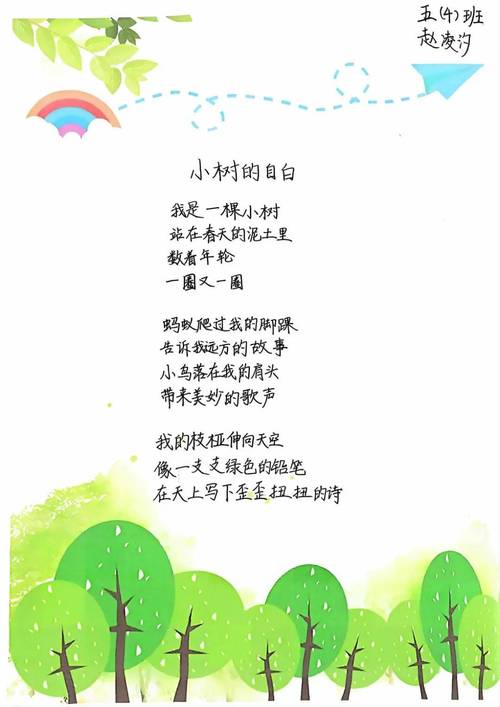 五(4)班
赵凌汐
小树的自白
我是一棵小树
站在春天的泥土里
数着年轮
一圈又一圈
蚂蚁爬过我的脚踝
告诉我远方的故事
小鸟落在我的肩头
带来美妙的歌声
我的枝桠伸向天空
像一支支绿色的铅笔
在天上写下歪歪扭扭的诗